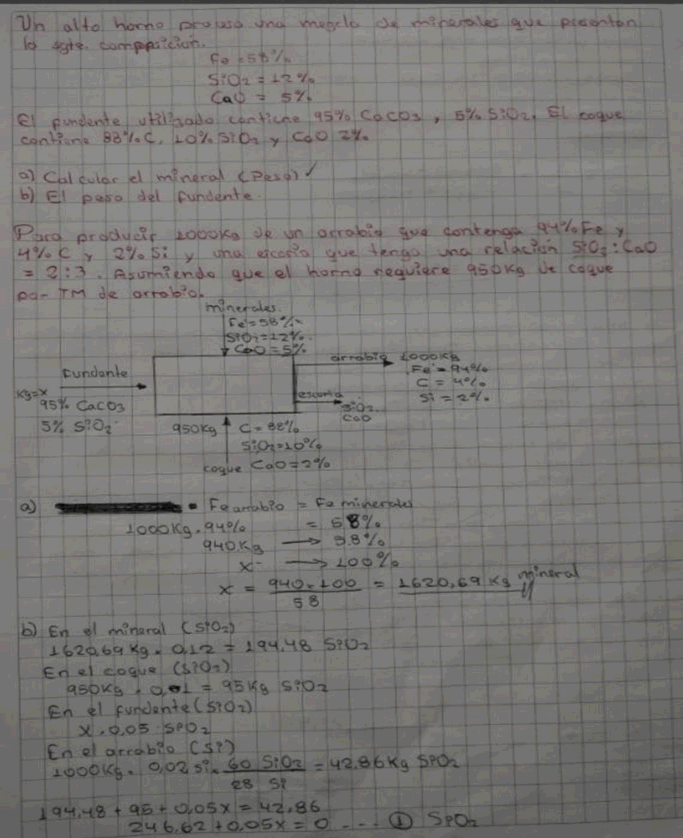 Un alto horno procesa una mezcla de minerales que presentan
la sgte. composición.
Fe = 58%
SiO2 = 12%
CaO = 5%
El fundente utilizado contiene 95% CaCO3, 5% SiO2. El coque
contiene 88% C, 10% SiO2 y CaO 2%.
a) Calcular el mineral (Peso) ✓
b) El peso del fundente.
Para producir 1000Kg de un arrabio que contenga 94% Fe y
4% C y 2% Si y una escoria que tenga una relación SiO2:CaO
= 2:3. Asumiendo que el horno requiere 950Kg de coque
por TM de arrabio.
minerales
Fe = 58%
SiO2 = 12%
CaO = 5%
fundente
Kg = x
95% CaCO3
5% SiO2
arrabio 1000Kg
Fe = 94%
C = 4%
Si = 2%
escoria
SiO2
CaO
950Kg C = 88%
SiO2 = 10%
coque CaO = 2%
a) Fe arrabio = Fe minerales
1000Kg . 94% = 58%
940Kg → 58%
x → 100%
x = 940 . 100 / 58 = 1620,69 Kg mineral
b) En el mineral (SiO2)
1620,69 Kg . 0,12 = 194,48 SiO2
En el coque (SiO2)
950Kg . 0,01 = 95Kg SiO2
En el fundente (SiO2)
x . 0,05 SiO2
En el arrabio (Si)
1000Kg . 0,02 Si . 60 SiO2 / 28 Si = 42,86Kg SiO2
194,48 + 95 + 0,05x = 42,86
246,62 + 0,05x = 0 .... ① SiO2